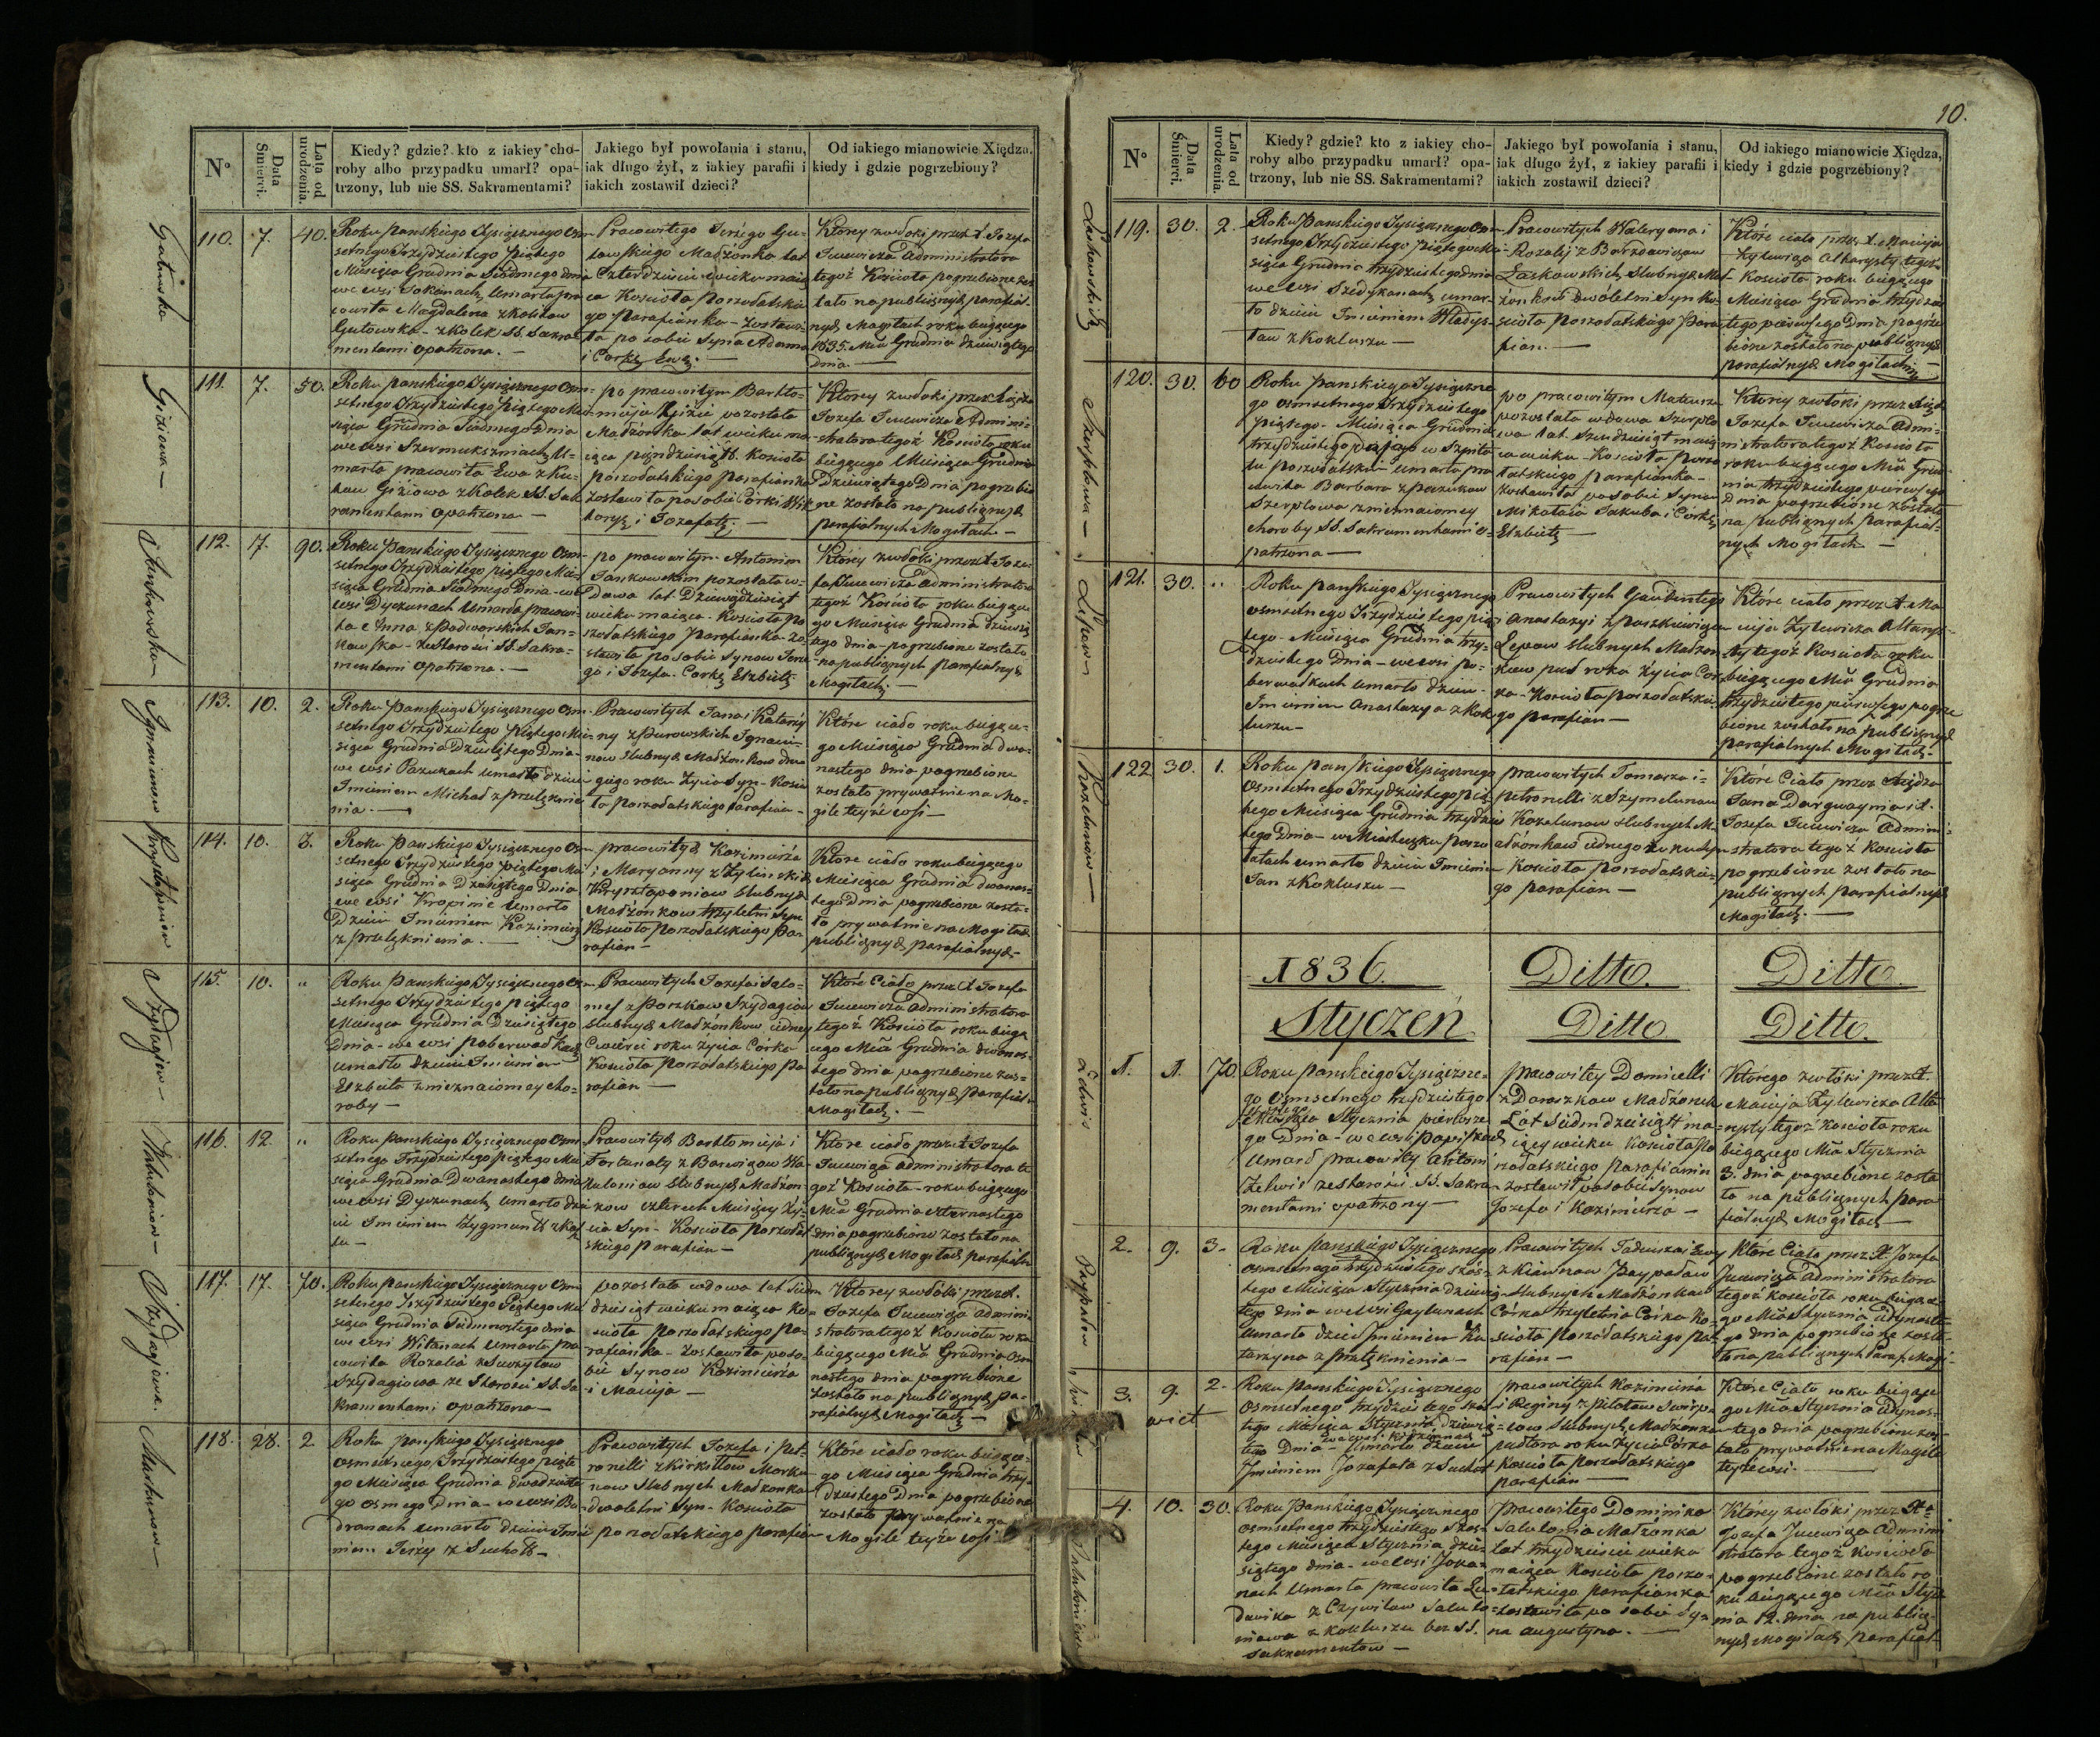 10.
No
Data Śmierci.
Lata od urodzenia.
Kiedy? gdzie? kto z iakiey choroby albo przypadku umarł? opatrzony, lub nie SS. Sakramentami?
Jakiego był powołania i stanu, iak długo żył, z iakiey parafii i iakich zostawił dzieci?
Od iakiego mianowicie Xiędza, kiedy i gdzie pogrzebiony?
110. 7. 40.
Roku Panskiego Tysiącznego Osm-
setnego Trzydziestego Piątego
Miesiąca Grudnia Siodmego dnia
we wsi Jokanach umarła pra-
cowita Magdalena
Gutowska - z kolek SS. Sakra-
mentami opatrzona. -
Pracowitego Jerzego Gu-
towskiego Małżonka lat
Czterdzieści wieku maią-
ca Kościoła Poszołatskie-
go Parafianka - zostawi-
ła po sobie Syna Adama
i Corkę Ewę. -
Ktorey zwłoki przez X Jozefa
Jucewicza Administratora
tegoż Kościoła pogrzebione zos-
tało na publicznych parafial-
nych Mogiłach roku bieżącego
1835 Mca Grudnia dziewiątego
dnia. -
111. 7. 50.
Roku panskiego Tysiącznego Osm-
setnego Trzydziestego Piątego Mie-
siąca Grudnia Siodmego dnia
we wsi Szermukszniach u-
marła pracowita Ewa
Giżiowa z Kolek SS. Sak
ramentami opatrzona -
po pracowitym Bartło-
mieju Giżie pozostała
Małżonka lat wieku ma-
iąca pięndziesiąt. Kościoła
poszołatskiego Parafianka
zostawiła po sobie Corki Wik
toryę i Jozafatę. -
Ktorey zwłoki przez Xiędza
Jozefa Jucewicza Admini-
stratora tegoż Kościoła roku
bieżącego Miesiąca Grudnia
dziewiątego Dnia pogrzebio
ne zostało na publicznych
parafialnych Mogiłach -
112. 17. 90.
Roku Panskiego Tysiącznego Osm-
setnego Trzydziestego piątego Mie-
siąca Grudnia Siodmego Dnia - we
wsi Dyrzunach umarła pracowi-
ta Anna z Podworskich Jan-
kowska - ze starości SS. Sakra-
mentami opatrzona. -
po pracowitym Antonim
Jankowskim pozostała w-
dowa lat Dziewiędziesiąt
wieku maiąca. Kościoła Po
szołatskiego Parafianka - zo-
stawiła po sobie Synow Jerze
go i Jozefa. Corkę Elżbietę -
Ktorey zwłoki przez X Joze-
fa Jucewicza Administratora
tegoż Kościoła roku bieżące
go Miesiąca Grudnia dziewią
tego dnia - pogrzebione zostało
na publicznych parafialnych
Mogiłach. -
113. 10. 2.
Roku Panskiego Tysiącznego Osm-
setnego Trzydziestego Piątego Mie-
siąca Grudnia Dziesiątego Dnia -
we wsi Pazukach umarło dziecie
Imieniem Michał z przelęknie
nia. -
Pracowitych Jana i Katarzy
ny z Purowskich Ignaciu-
now slubnych Małżonkow dru
giego roku życia Syn - Kościo
ła poszołatskiego Parafian -
Które ciało roku bieżące-
go Miesiąca Grudnia dwu-
nastego dnia pogrzebione
zostało prywatnie na Mo-
gile teyże wsi -
114. 10. 3.
Roku Panskiego Tysiącznego Osm
setnego Trzydziestego piątego Mie
siąca Grudnia Dziesiątego Dnia
we wsi Kropinie umarło
Dziecie Imieniem Kazimierz
z przelęknienia. -
pracowitych Kazimierza
i Maryanny z Żylinskich
Krysztaponiow slubnych
Małżonkow trzyletni Syn
Kościoła Poszołatskiego Pa-
rafian -
Ktore ciało roku bieżącego
Miesiąca Grudnia dwunas-
tego Dnia pogrzebione zosta-
ło prywatnie na Mogiłach
publicznych parafialnych -
115. 10. "
Roku Panskiego Tysiącznego Osm
setnego Trzydziestego piątego
Miesiąca Grudnia Dziesiątego
Dnia - we wsi Poberwadkach
umarło dziecie Imieniem
Elżbieta z nieznaiomey cho-
roby -
Pracowitych Jozefa i Salo-
mei z Poszkow Szydagiow
slubnych Małżonkow iedney
Cwierci roku życia Córka
Kościoła Poszołatskiego Pa
rafian -
Które Ciało przez X Jozefa
Jucewicza Administratora
tegoż Kościoła roku bieżą
cego Mca Grudnia dwunas-
tego dnia pogrzebione zos-
tało na publicznych Parafial-
Mogiłach. -
116. 12 "
Roku Panskiego Tysiącznego Osm
setnego Trzydziestego piątego Mie
siąca Grudnia Dwunastego dnia
we wsi Dyrzunach umarło dzie
cie Imieniem Zygmunt z kasz
lu -
Pracowitych Bartłomieja i
Fortunaty z Barwizow Wa-
luloniow slubnych Małżon-
kow czterech Miesięcy ży-
cia Syn - Kościoła Poszołat
skiego Parafian -
Ktore ciało przez X Jozefa
Jucewiża administratora te
goż Kościoła - roku bieżącego
Mca Grudnia czternastego
dnia pogrzebione zostało na
publicznych Mogiłach parafialn
117. 17. 70.
Roku panskiego Tysiącznego Osm
setnego Trzydziestego Piątego Mie
siąca Grudnia Siedmnastego dnia
we wsi Witanach umarła pra
cowita Rozalia
Szydagiowa ze Starości SS. Sa
kramentami opatrzona -
pozostała wdowa lat Siedm
dziesiąt wieku maiąca Ko-
ścioła poszołatskiego pa-
rafianka - zostawiła po so-
bie Synow Kazimierza
i Macieja -
Ktorey zwłoki przez X.
Jozefa Jucewiża admini
stratora tegoż Kościoła roku
bieżącego Mca Grudnia Osm
nastego dnia pogrzebione
zostało na publicznych pa-
rafialnych Mogiłach -
118. 28. 2
Roku panskiego Tysiącznego
Osmsetnego Trzydziestego piąte
go Miesiąca Grudnia dwudzieste
go osmego Dnia - we wsi Bu-
dranach umarło dziecie Imie
niem Jerzy z Suchot -
Pracowitych Jozefa i Pet-
ronelli z Kirkiłłow Morku-
now slubnych Małżonkow
dwóletni Syn - Kościoła
poszołatskiego parafian
Które ciało roku bieżące-
go Miesiąca Grudnia trzy-
dziestego Dnia pogrzebione
zostało prywatnie na
Mogile teyże wsi
Gutowska
Giżiowa -
Jankowska
Ignaciunow
Krysztaponiow
Szydagiow -
Waluloniow -
Szydagiowa.
Markunow -
No
Data Śmierci.
Lata od urodzenia.
Kiedy? gdzie? kto z iakiey choroby albo przypadku umarł? opatrzony, lub nie SS. Sakramentami?
Jakiego był powołania i stanu, iak długo żył, z iakiey parafii i iakich zostawił dzieci?
Od iakiego mianowicie Xiędza, kiedy i gdzie pogrzebiony?
119. 30. 2.
Roku Panskiego Tysiącznego Osm-
setnego Trzydziestego piątego Mie
siąca Grudnia trzydziestego dnia
we wsi Szedykanach umar-
ło dziecie Imieniem Władys-
ław z Kokluszu -
Pracowitych Waleryana i
Rozalij z Burdowiczow
Laskowskich Slubnych Mał-
żonkow Dwóletni Syn Ko-
ścioła Poszołatskiego Para-
fian. -
Które ciało przez X. Macieja
Żylewicza Altarysty tegoż
Kościoła roku bieżącego
Miesiąca Grudnia trzydzies
tego pierwszego Dnia pogrze
bione zostało na publicznych
parafialnych Mogiłach -
120. 30. 60
Roku Panskiego Tysiączne
go osmsetnego Trzydziestego
piątego - Miesiąca Grudnia
trzydziestego dnia w Szpita
lu poszołatskim umarła pra
cowita Barbara z Pazukow
Szerpłowa z nieznaiomey
choroby SS. Sakramentami o-
patrzona -
po pracowitym Mateuszu
pozostała wdowa Szerpło
wa lat Szescdziesiąt maią
ca wieku - Kościoła poszo
łatskiego parafianka -
zostawiła po sobie Synow
Mikołaia Jakuba i Corkę
Elzbietę -
Ktorey zwłoki przez Xiędza
Jozefa Jucewicza admi-
nistratora tegoż Kościoła
roku bieżącego Mca Grud
nia trzydziestego pierwszego
dnia pogrzebione zostało
na publicznych parafial-
nych Mogiłach -
121. 30. "
Roku panskiego Tysiącznego
osmsetnego Trzydziestego pią
tego - Miesiąca Grudnia trzy-
dziestego Dnia - we wsi po-
berwadkach umarło dziecie
Imieniem Anastazya z kok-
luszu -
Pracowitych Gaudentego
i Anastazyi z Poszkiewiczow
Lepow slubnych Małżon-
kow puł roka życia Cor
ka - Kościoła poszołatskie
go parafian -
Które ciało przez X. Ma
cieja Żylewicza Altarys-
ty tegoż Kościoła roku
bieżącego Mca Grudnia
trzydziestego pierwszego pogrze
bione zostało na publicznych
parafialnych Mogiłach -
122 30. 1.
Roku panskiego Tysiącznego
Osmsetnego Trzydziestego pią
tego Miesiąca Grudnia trzydzies
tego Dnia - w Miasteczku poszo
łatach umarło dziecie Imieniem
Jan z Kokluszu -
pracowitych Tomasza i
petronelli z Szymelunow
Kozelunow slubnych Ma-
łżonkow iednego roku Syn
Kościoła Poszołatskie-
go parafian -
Które Ciało przez Xiędza
Jana Dargwayna i X.
Jozefa Jucewicza Admini-
stratora tegoż Kościoła
pogrzebione zostało na
publicznych parafialnych
Mogiłach. -
1836. Ditto. Ditto.
Styczeń Ditto Ditto.
1. 1. 70
Roku panskiego Tysiączne-
go Osmsetnego trzydziestego
szóstego Miesiąca Stycznia pierwsze
go Dnia - we wsi Popiszkach
Umarł pracowity Antoni
Żelwis ze starości SS. Sakra-
mentami opatrzony -
pracowitey Domicelli
z Daraszkow Małżonek
Lat Siedmdziesiąt ma-
iący wieku Kościoła Po
szołatskiego parafianin
zostawił po sobie Synow
Jozefa i Kazimierza -
Którego zwłoki przez X.
Macieja Żylewicza Alta
rysty tegoż Kościoła roku
bieżącego Mca Stycznia
3. dnia pogrzebione zosta
ło na publicznych para
fialnych Mogiłach -
2. 9. 3.
Roku panskiego Tysiącznego
osmsetnego trzydziestego szós-
tego Miesiąca Stycznia dziewią-
tego dnia we wsi Gaylunach
Umarło dziecie Imieniem Ka
tarzyna z przelęknienia -
Pracowitych Tadeusza i Ewy
z Kiawnow Paypałow
Slubnych Małżonkow
Córka trzyletnia Córka Ko-
ścioła Poszołatskiego Pa-
rafian -
Które Ciało przez X. Jozefa
Jucewicza Administratora
tegoż Kościoła roku bieżące-
go Mca Stycznia iedynaste-
go dnia pogrzebione zosta
ło na publicznych Paraf. Mogi-
3. 9. 2.
wiet
Roku Panskiego Tysiącznego
Osmsetnego trzydziestego szós-
tego Miesiąca Stycznia dziewią-
tego Dnia - we wsi Umarło dziecie
Imieniem Jozafata z Suchot
pracowitych Kazimierza
i Reginy z Pilotow
Slubnych Małżonkow
pułtora roku życia Córka
Kościoła Poszołatskiego
parafian -
Które Ciało roku bieżące
go Mca Stycznia iedynas-
tego dnia pogrzebione zos-
tało prywatnie na Mogile
teyże wsi. -
4. 10. 30.
Roku Panskiego Tysiącznego
osmsetnego trzydziestego szós-
tego Miesiąca Stycznia dzie-
siątego dnia - we wsi Joka-
nach Umarła pracowita Lu-
dwika z Czywilow Salulo-
niowa z Kokluszu bez SS.
Sakramentow -
Pracowitego Dominika
Salulonia Małżonka
lat trzydzieście wieku
maiąca Kościoła poszo-
łatskiego parafianka
zostawiła po sobie Sy-
na Augustyna. -
Ktorey zwłoki przez X
Jozefa Jucewiża Admini
stratora tegoż Kościoła
pogrzebione zostało ro
ku bieżącego Mca Stycz
nia 12. dnia na publicz-
nych Mogiłach parafial-
Laskowskich
Szerpłowa -
Lepow -
Kozelunow -
Żelwis
Paypałow